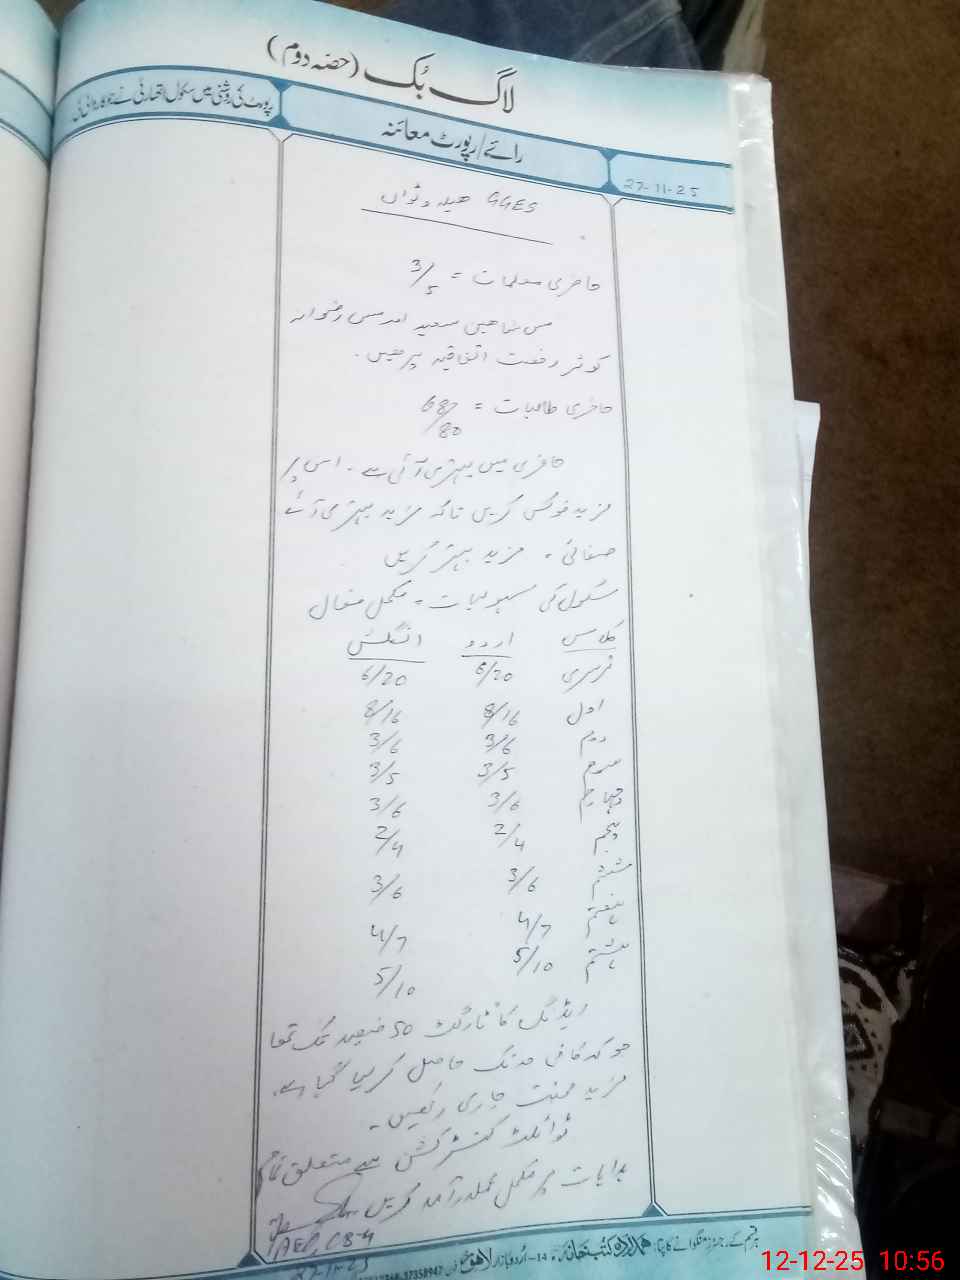 لاگ بک (حصہ دوم)
رپورٹ کی روشنی میں سکول اتھارٹی نے جو کاروائی کی
رائے/رپورٹ معائنہ
27-11-25
GGES
حاضری معلمات = 3/5
مس شاھین سعید اور مس رضوانہ
کوثر رخصت اتفاقیہ پر ھیں۔
حاضری طالبات = 68/80
حاضری میں بہتری آئی ہے۔ اس پر
مزید فوکس کریں تاکہ مزید بہتری آئے
صفائی = مزید بہتر کریں
سکول کی سہولیات = مکمل فعال
کلاس اردو انگلش
نرسری 6/20 6/20
اول 8/16 8/16
دوم 3/6 3/6
سوم 3/5 3/5
چہارم 3/6 3/6
پنجم 2/4 2/4
ششم 3/6 3/6
ہفتم 4/7 4/7
ہشتم 5/10 5/10
ریڈنگ کا ٹارگٹ 50 فیصد تک تھا
جو کہ کافی حد تک حاصل کر لیا گیا ہے۔
مزید محنت جاری رکھیں۔
ٹوائلٹ کنسٹرکشن سے متعلق تمام
ہدایات پر مکمل عملدرآمد کریں
AEO, CB-4
27-11-25
ہر قسم کے رجسٹر منگوانے کا پتا: ہمدرد کتب خانہ 14-اردو بازار لاہور
37358947
12-12-25 10:56